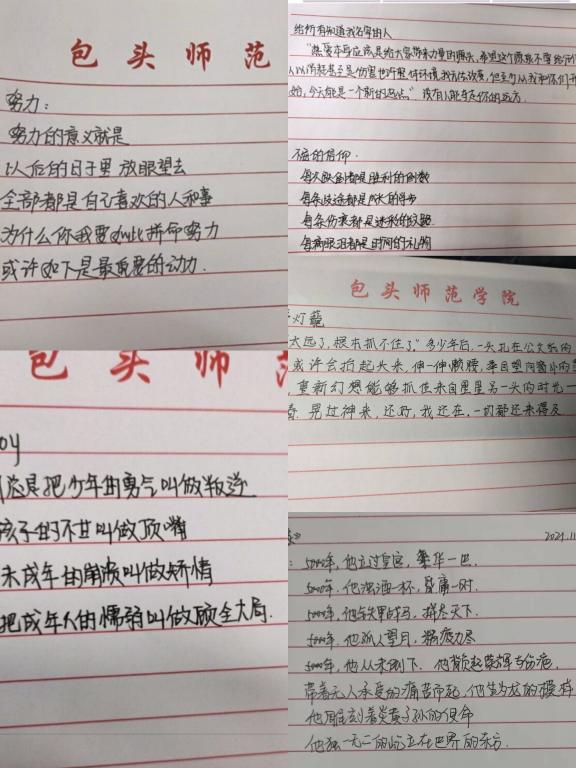 包头师范
努力:
努力的意义就是
以后的日子里放眼望去
全部都是自己喜欢的人和事
为什么你我要如此拼命努力
或许如下是最重要的动力.
包头师范
oy
总是把少年的勇气叫做叛逆
孩子的不甘叫做顶嘴
未成年的崩溃叫做矫情
把成年人的懦弱叫做顾全大局.
给所有知道我名字的人
"热爱本身应该是给大家带来力量的源头,希望这个源泉不要给
人以消耗甚至是伤害也许里 何环境我无法改变,但至少从我和你们开
始,今天能是一个新的起点." 没有人能夺走你的远方.
不倦的信仰.
每次跌倒都是胜利的倒数
每条歧途都是成长的学步
每条伤痕都是迷彩的纹路
每滴眼泪都是时间的礼物
包头师范学院
灯 龍
太远了,根本抓不住了" 多少年后,一头扎在公文系的
或许会抬起头来,伸一伸懒腰,举目望向窗外的
重新幻想能够抓住来自星星另一头的时光一
看.晃过神来,还好,我还在,一切都还来得及
2021.11
5000年,他立过皇宫,繁华一世.
5000年.他浊酒一杯,昏庸一时.
5000年,他铁甲战马,拼尽天下.
5000年.他孤人望月,精疲力尽
5000年,他从未倒下.他背起荣辉与伤疤,
带着无人承受的痛苦而起,他生为龙的模样
他雕刻着炎黄子孙的使命
他独一无二的屹立在世界的东方.